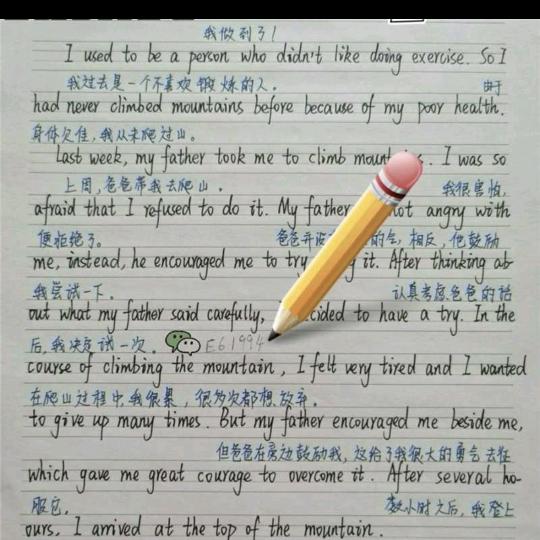 我做到了!
I used to be a person who didn't like doing exercise. So I
我过去是一个不喜欢锻炼的人。 由于
had never climbed mountains before because of my poor health.
身体欠佳,我从未爬过山。
Last week, my father took me to climb . I was so
上周,爸爸带我去爬山. 我很害怕,
afraid that I refused to do it. My father not angry with
便拒绝了。 爸爸并 的气,相反,他鼓励
me, instead, he encouraged me to try it. After thinking ab-
我尝试一下. 认真考虑爸爸的话
out what my father said carefully, to have a try. In the
后,我决定试一次. E61994
course of climbing the mountain, I felt very tired and I wanted
在爬山过程中,我很累,很多次都想放弃.
to give up many times. But my father encouraged me beside me,
但爸爸在旁边鼓励我,这给了我很大的勇气去征
which gave me great courage to overcome it. After several ho-
服它. 数小时之后,我登上
ours, I arrived at the top of the mountain.